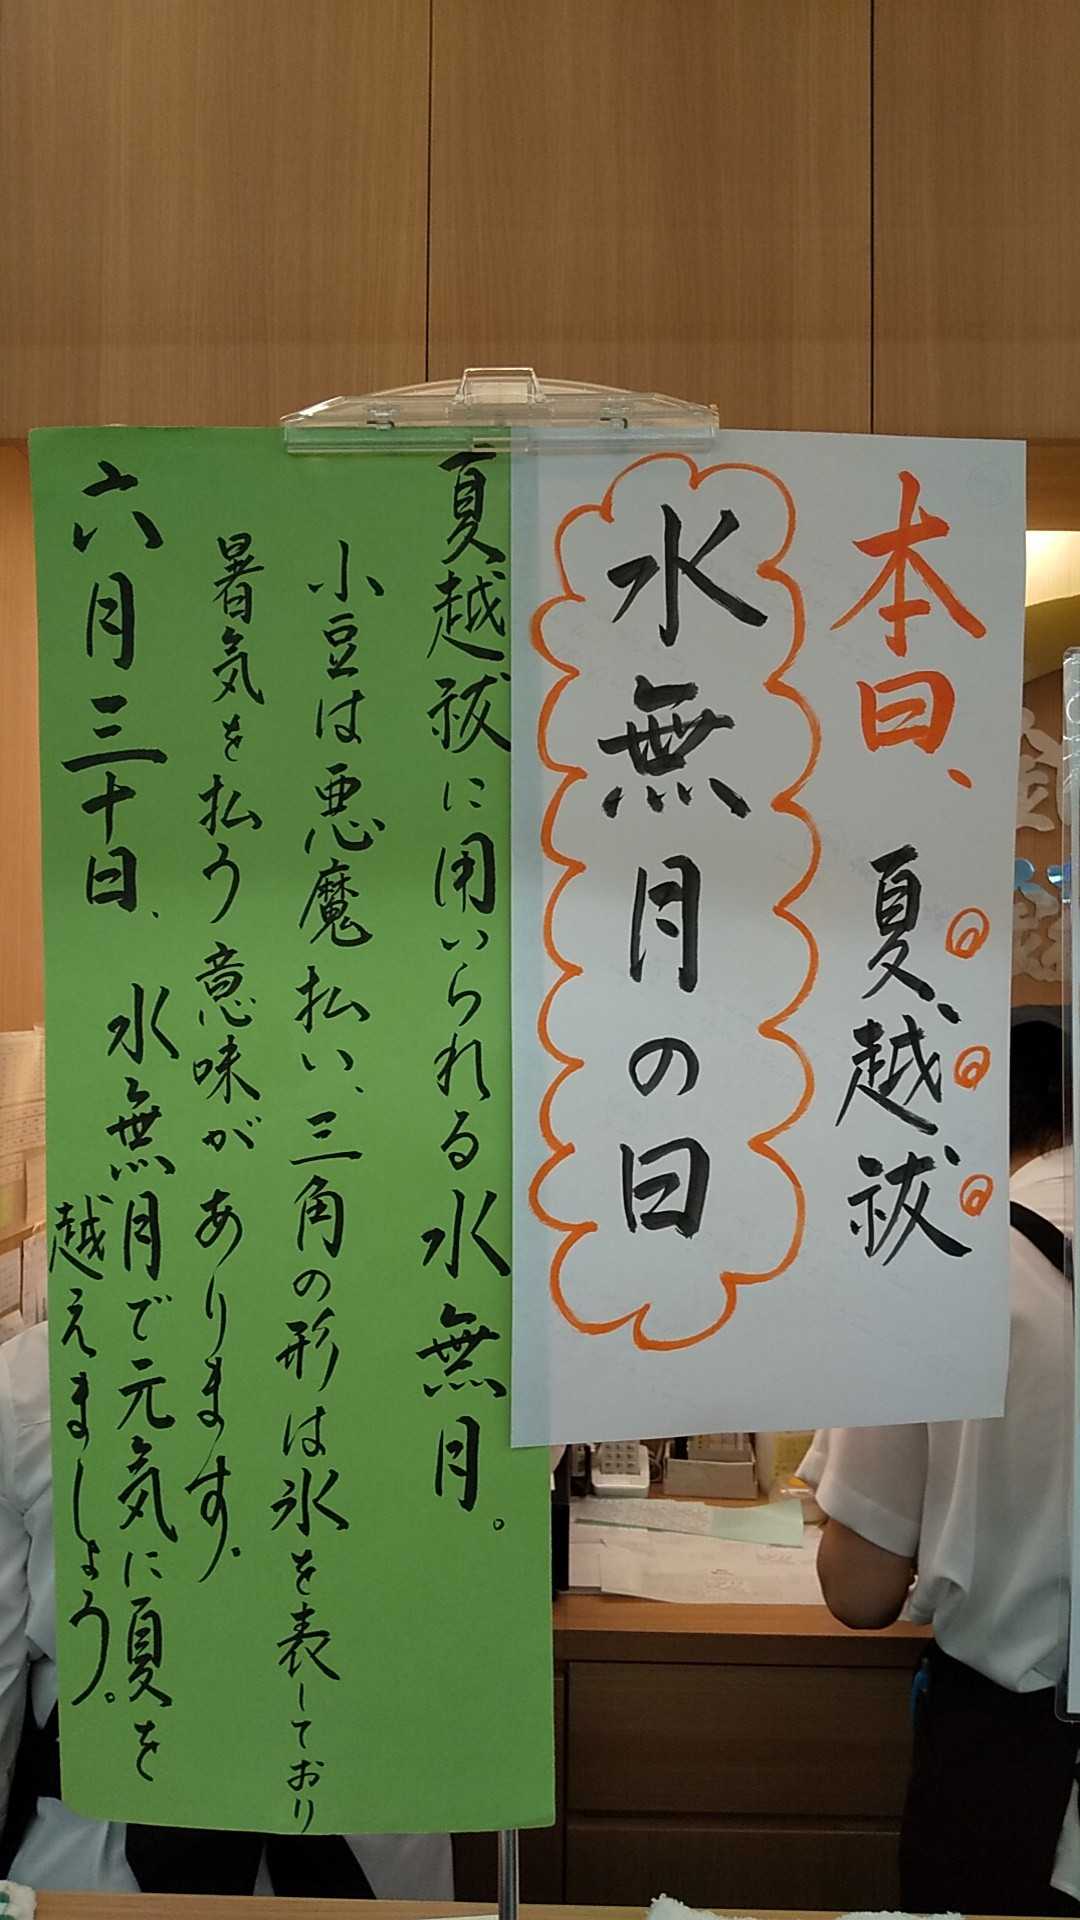 本日、夏越祓
水無月の日
夏越祓に用いられる水無月。
小豆は悪魔払い、三角の形は氷を表しており
暑気を払う意味があります。
六月三十日、水無月で元気に夏を
越えましょう。